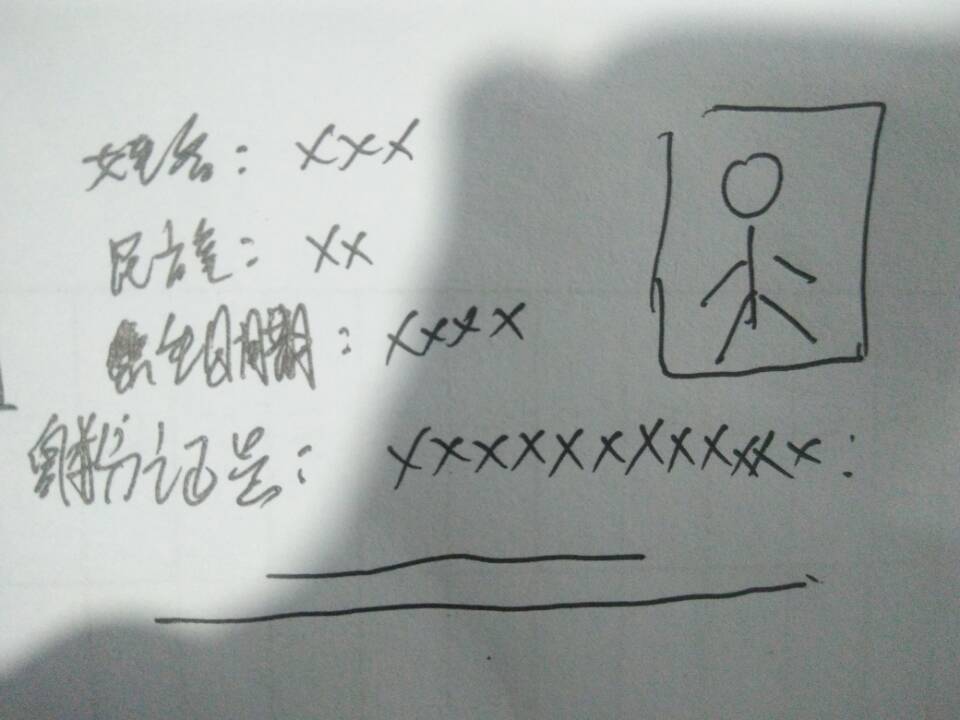 姓名: XXX
民族: XX
出生日期: XXXX
身份证号: XXXXXXXXXXX: